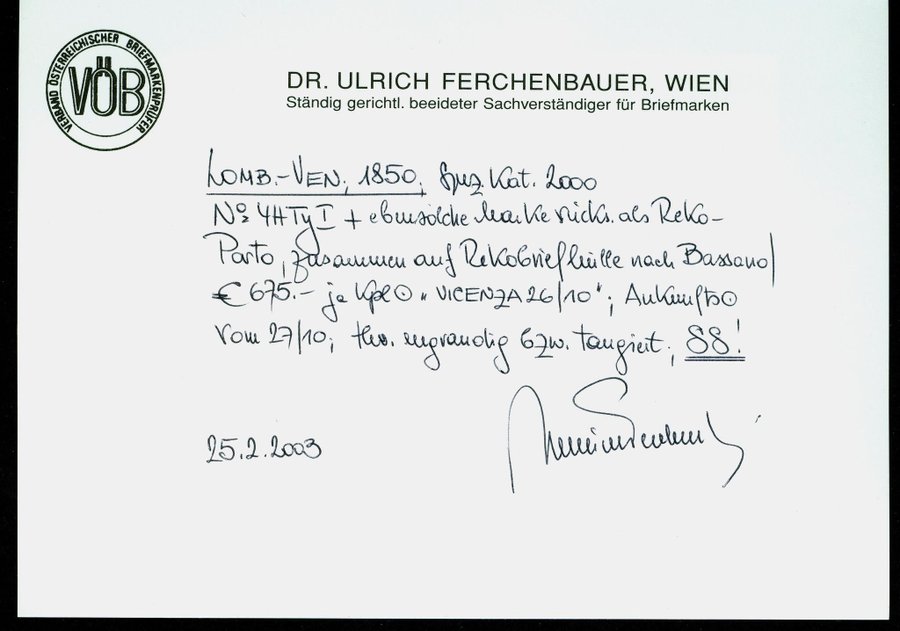 VERBAND ÖSTERREICHISCHER BRIEFMARKENPRÜFER
VÖB
DR. ULRICH FERCHENBAUER, WIEN
Ständig gerichtl. beeideter Sachverständiger für Briefmarken
LOMB.-VEN, 1850, Spez. Kat. 2000
No: 4HTyI + ebensolche Marke rücks. als Reko-
Porto, zusammen auf Rekobriefhülle nach Bassano/
€ 675.- je Kpl ⊙ "VICENZA 26/10"; Ankunfts⊙
vom 27/10; tlw. engrandig bzw. tangiert, SS!
25.2.2003